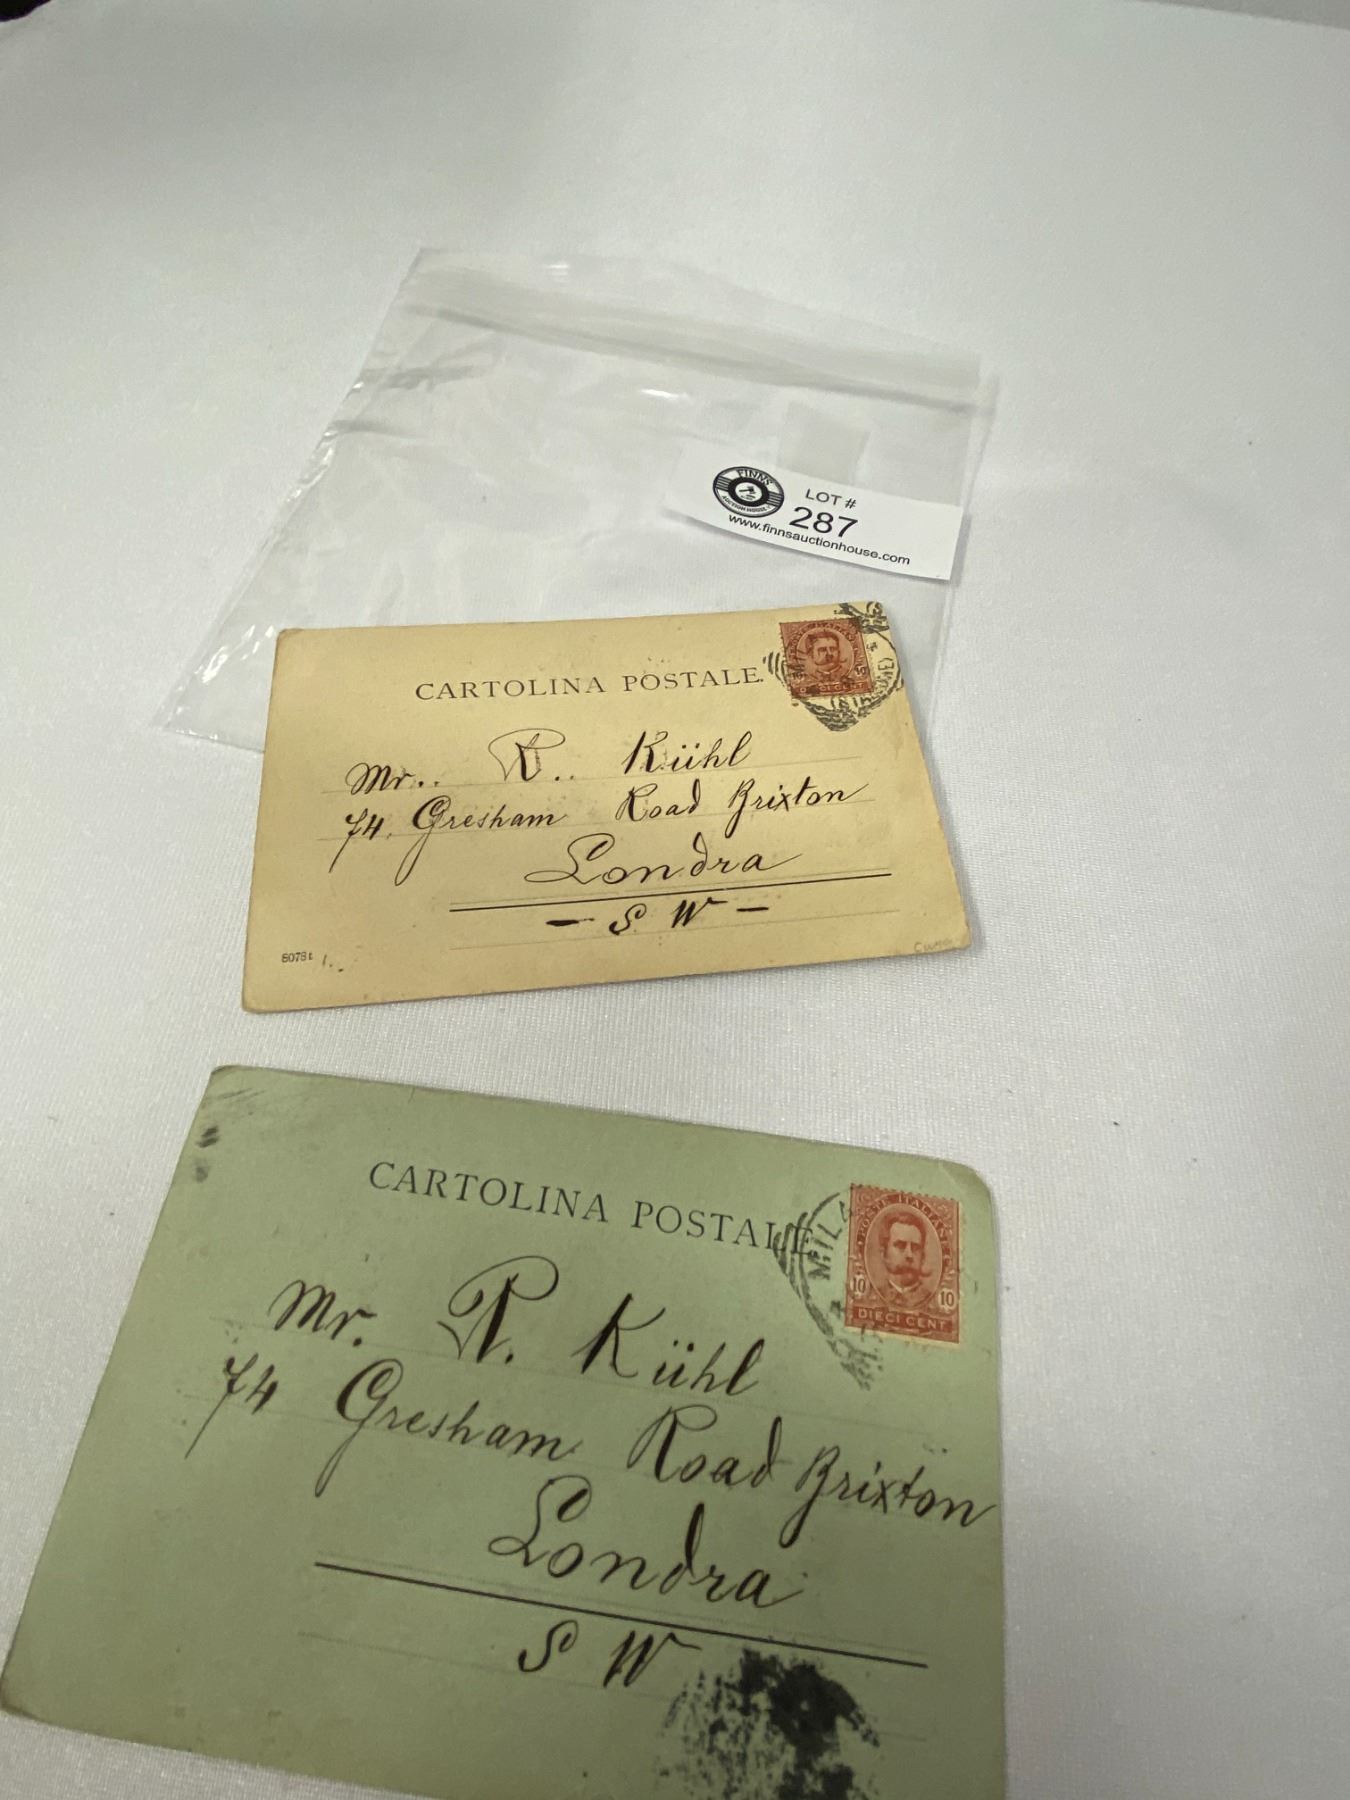 FINNS
AUCTION HOUSE
LOT #
287
www.finnsauctionhouse.com
CARTOLINA POSTALE.
POSTE ITALIANE
10
Mr.. R.. Kühl
74, Gresham Road Brixton
Londra
— S. W —
CARTOLINA POSTALE
MILA
POSTE ITALIANE
10 10
DIECI CENT
Mr. R. Kühl
74 Gresham Road Brixton
Londra
S W